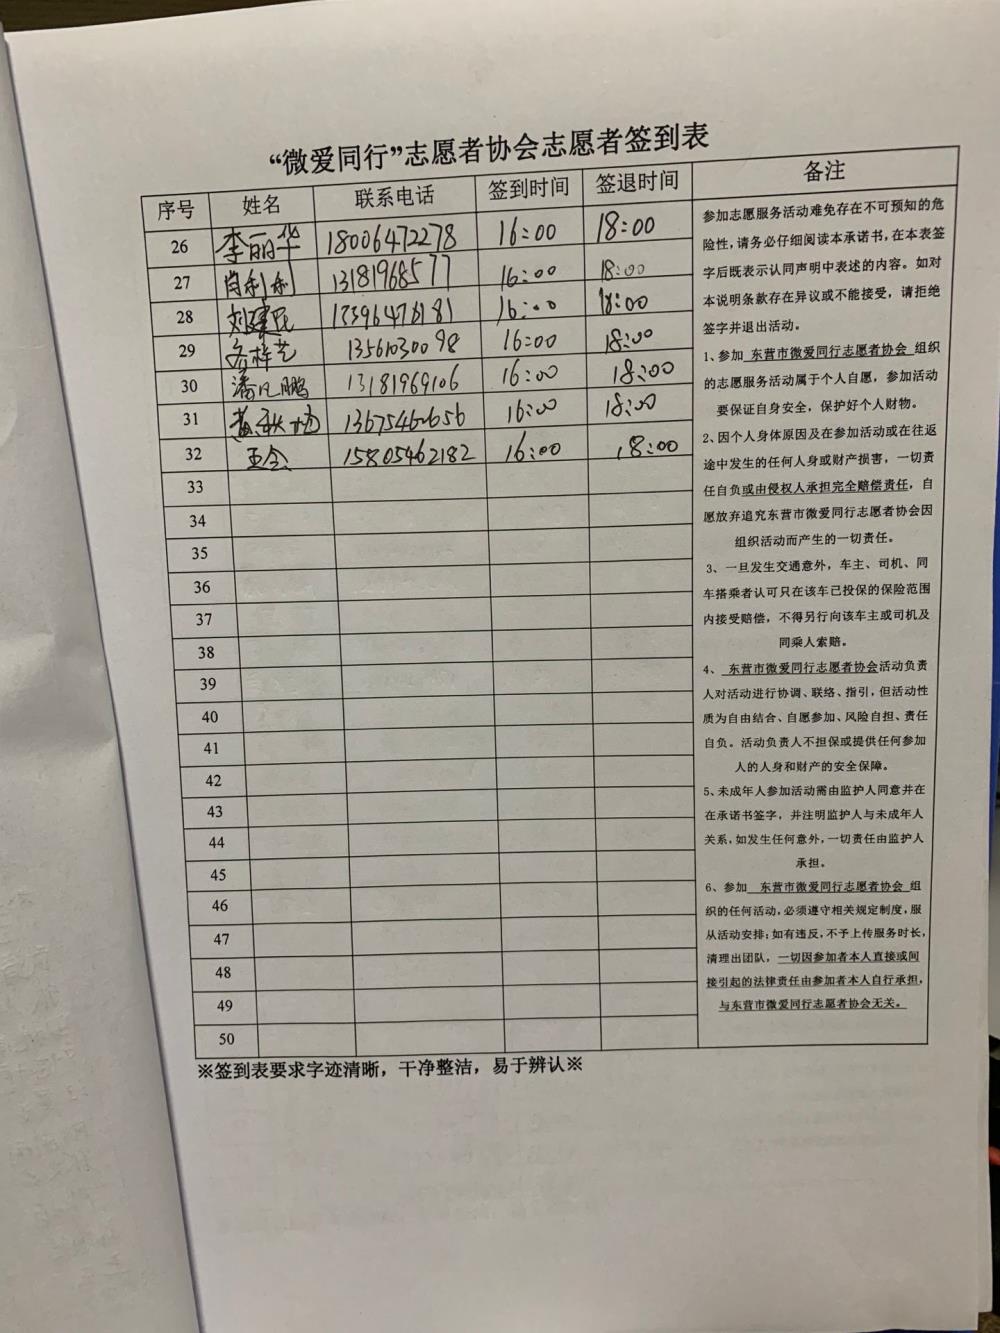 “微爱同行”志愿者协会志愿者签到表
序号 姓名 联系电话 签到时间 签退时间 备注
26 李丽华 18006472278 16:00 18:00
27 肖利利 13181968577 16:00 18:00
28 16:00 18:00
29 13561030098 16:00 18:00
30 潘凡鹏 13181969106 16:00 18:00
31 16:00 18:00
32 15805462182 16:00 18:00
33
34
35
36
37
38
39
40
41
42
43
44
45
46
47
48
49
50
参加志愿服务活动难免存在不可预知的危
险性,请务必仔细阅读本承诺书,在本表签
字后既表示认同声明中表述的内容。如对
本说明条款存在异议或不能接受,请拒绝
签字并退出活动。
1、参加 东营市微爱同行志愿者协会 组织
的志愿服务活动属于个人自愿,参加活动
要保证自身安全,保护好个人财物。
2、因个人身体原因及在参加活动或在往返
途中发生的任何人身或财产损害,一切责
任自负或由侵权人承担完全赔偿责任,自
愿放弃追究东营市微爱同行志愿者协会因
组织活动而产生的一切责任。
3、一旦发生交通意外,车主、司机、同
车搭乘者认可只在该车已投保的保险范围
内接受赔偿,不得另行向该车主或司机及
同乘人索赔。
4、 东营市微爱同行志愿者协会活动负责
人对活动进行协调、联络、指引,但活动性
质为自由结合、自愿参加、风险自担、责任
自负。活动负责人不担保或提供任何参加
人的人身和财产的安全保障。
5、未成年人参加活动需由监护人同意并在
在承诺书签字,并注明监护人与未成年人
关系,如发生任何意外,一切责任由监护人
承担。
6、参加 东营市微爱同行志愿者协会 组
织的任何活动,必须遵守相关规定制度,服
从活动安排;如有违反,不予上传服务时长,
清理出团队,一切因参加者本人直接或间
接引起的法律责任由参加者本人自行承担,
与东营市微爱同行志愿者协会无关。
※签到表要求字迹清晰,干净整洁,易于辨认※